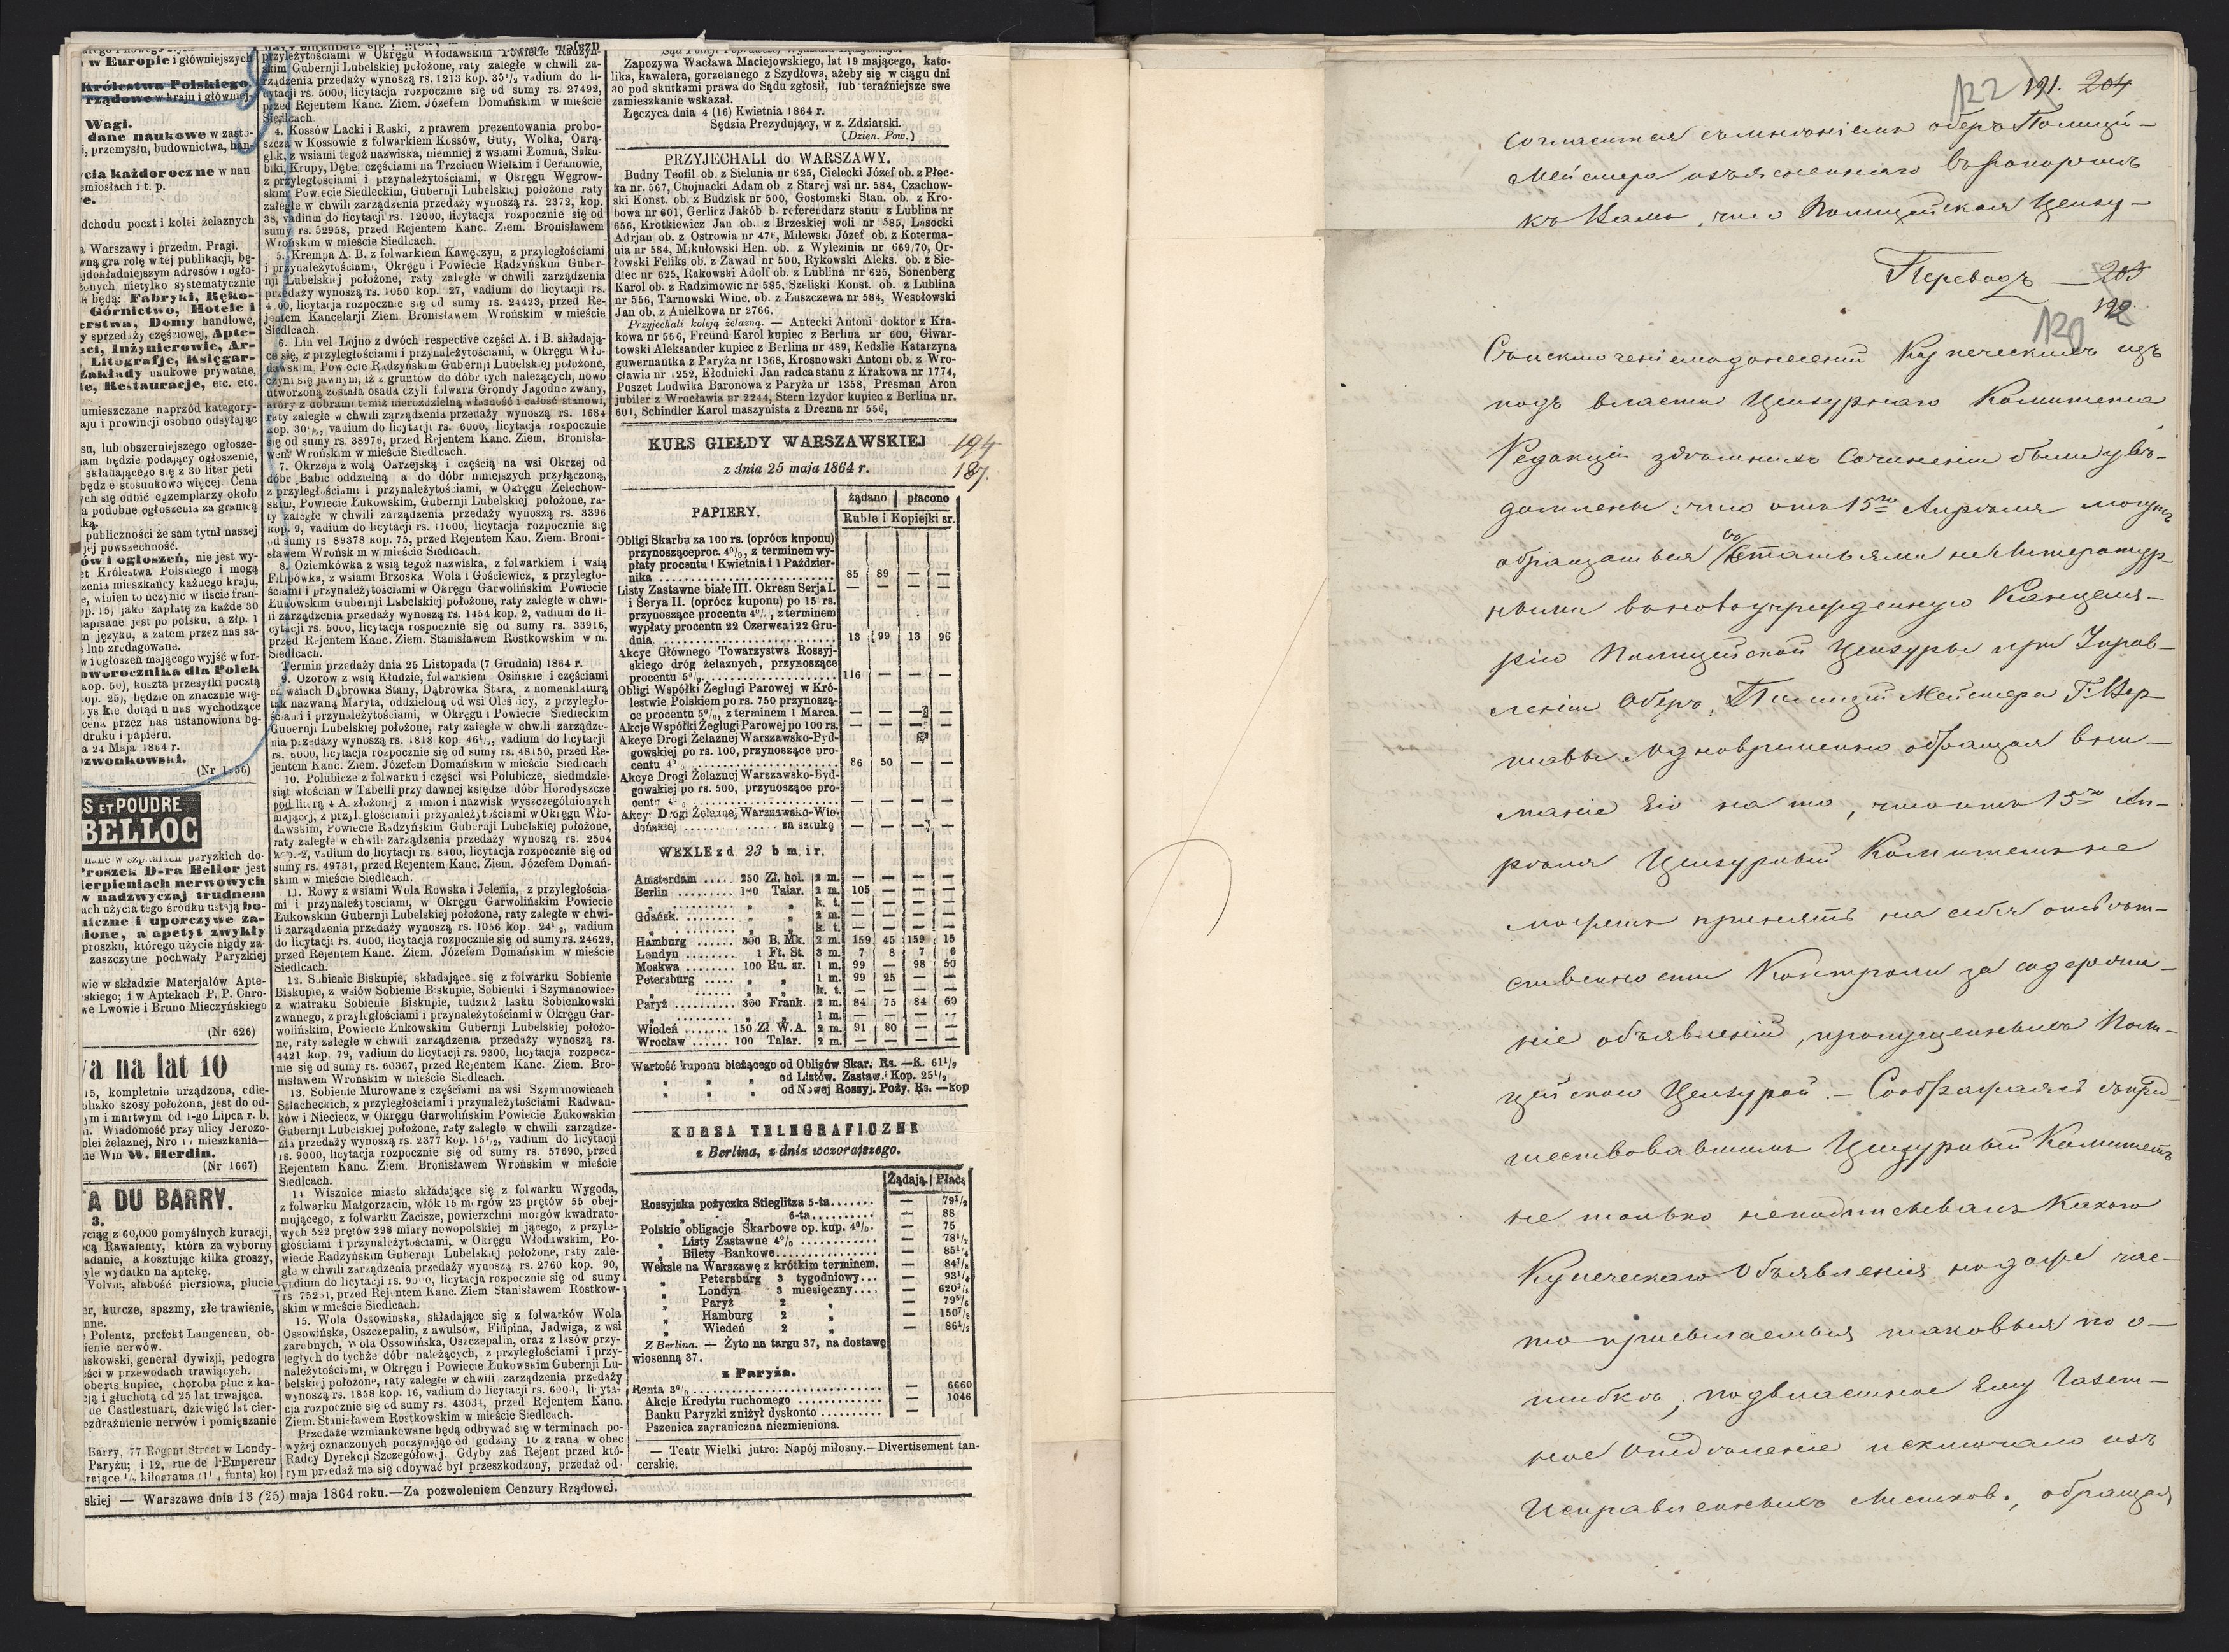 w Europie i główniejszych
Królestwa Polskiego,
rządowe w kraju i główniej-
Wagi.
dane naukowe w zasto-
i, przemysłu, budownictwa, han-
cia każdoroczne w nau-
emiosłach i t. p.
dchodu poczt i kolei żelaznych
Warszawy i przedm. Pragi.
wną gra rolę w tej publikacji, bę-
jdokładniejszym adresów i ogło-
onych nietylko systematycznie
będą: Fabryki, Ręko-
Górnictwo, Hotele i
erstwa, Domy handlowe,
y sprzedaży częściowej, Apte-
aci, Inżynierowie, Ar-
Litografje, Księgar-
Zakłady naukowe prywatne,
le, Restauracje, etc. etc.
umieszczane naprzód kategory-
aju i prowincji osobno odsyłając
su, lub obszerniejszego ogłosze-
am będzie podający ogłoszenie,
składającego się z 30 liter peti
będzie stosunkowo więcej. Cena
ych się odbić egzemplarzy około
a podobne ogłoszenia za granicą
ką.
publiczności że sam tytuł naszej
jej powszechność.
ów i ogłoszeń, nie jest wy-
et Królestwa Polskiego i mogą
zenia mieszkańcy każdego kraju,
e, winien to uczynić w liście fran-
op. 15) jako zapłatę za każde 30
apisane jest po polsku, a złp. 1
m języku, a zatem przez nas sa-
lub zredagowane.
w i ogłoszeń mającego wyjść w for-
oworocznika dla Polek
kop. 50), koszta przesyłki pocztą
op. 25), będzie on znacznie wię-
ys kie dotąd u nas wychodzące
cena przez nas ustanowiona bę-
druku i papieru.
a 24 Maja 1864 r.
Dzwonkowski.
S ET POUDRE
BELLOC
nane w szpitalach paryzkich do-
Proszek D-ra Bellor jest
ierpieniach nerwowych
w nadzwyczaj trudnem
ach użycia tego środku ustają bo-
niczne i uporczywe za-
ione, a apetyt zwykły
proszku, którego użycie nigdy za-
zaszczytne pochwały Paryzkiej
wie w składzie Materjałów Apte-
skiego; i w Aptekach P. P. Chro-
we Lwowie i Bruno Mieczyńskiego
(Nr 626)
a na lat 10
15, kompletnie urządzona, odle-
blizko szosy położona, jest do od-
ym i martwym od 1-go Lipca r. b.
i. Wiadomość przy ulicy Jerozo-
olei żelaznej, Nro 17 mieszkania—
cie Win W. Herdin.
(Nr 1667)
A DU BARRY.
3.
yciąg z 60,000 pomyślnych kuracji,
cą Rawalenty, która za wyborny
adanie, a kosztując kilka groszy,
yle wydatku na aptekę.
Volvic, słabość piersiowa, płucie
er, kurcze, spazmy, złe trawienie,
nne.
Polentz, prefekt Langeneau, ob-
ienie nerwów.
uskowski, generał dywizji, pedogra
eści w przewodach trawiących.
oberts kupiec, choroba płuc z ka-
cją i głuchotą od 25 lat trwająca.
de Castlestuart, dziewięć lat cier-
ozdrażnienie nerwów i pomięszanie
Barry, 77 Regent Street w Londy-
Paryżu; i 12, rue de l'Empereur
skiej — Warszawa dnia 13 (25) maja 1864 roku.—Za pozwoleniem Cenzury Rządowej.
przyległościami w Okręgu Włodawskim Powiecie Radzyń-
skim Gubernji Lubelskiej położone, raty zaległe w chwili za-
rządzenia przedaży wynoszą rs. 1213 kop. 35½ vadium do li-
cytacji rs. 5000, licytacja rozpocznie się od sumy rs. 27492,
przed Rejentem Kanc. Ziem. Józefem Domańskim w mieście
Siedlcach
4. Kossów Lacki i Ruski, z prawem prezentowania probo-
szcza w Kossowie z folwarkiem Kossów, Guty, Wólka, Okrą-
glik, z wsiami tegoż nazwiska, niemniej z wsiami Łomna, Saku-
biki, Krupy, Dębe, częściami na Trzcińcu Wielkim i Ceranowie,
z przyległościami i przynależytościami, w Okręgu Węgrow-
skim Powiecie Siedleckim, Gubernji Lubelskiej położone raty
zaległe w chwili zarządzenia przedaży wynoszą rs. 2372, kop.
38, vadium do licytacji rs. 12000, licytacja rozpocznie się od
sumy rs. 52958, przed Rejentem Kanc. Ziem. Bronisławem
Wrońskim w mieście Siedlcach.
5. Krempa A. B. z folwarkiem Kawęczyn, z przyległościami
i przynależytościami, Okręgu i Powiecie Radzyńskim Guber-
nji Lubelskiej położone, raty zaległe w chwili zarządzenia
przedaży wynoszą rs. 1050 kop. 27, vadium do licytacji rs.
licytacja rozpocznie się od sumy rs. 24423, przed Re-
jentem Kancelarji Ziem. Bronisławem Wrońskim w mieście
Siedlcach.
6. Liu vel Lojno z dwóch respective części A. i B. składają-
ce się, z przyległościami i przynależytościami, w Okręgu Wło-
dawskim, Powiecie Radzyńskim Gubernji Lubelskiej położone,
czyni się jawnym, iż z gruntów do dóbr tych należących, nowo
utworzoną została osada czyli folwark Grondy Jagodne zwany,
który z dobrami temiż nierozdzielną własność i całość stanowi,
raty zaległe w chwili zarządzenia przedaży wynoszą rs. 1684
kop. 30½, vadium do licytacji rs. 6000, licytacja rozpocznie
się od sumy rs. 38976, przed Rejentem Kanc. Ziem. Bronisła-
wem Wrońskim w mieście Siedlcach.
7. Okrzeja z wolą Okrzejską i częścią na wsi Okrzej od
dóbr Babic oddzielną a do dóbr niniejszych przyłączoną,
z przyległościami i przynależytościami, w Okręgu Żelechow-
skim, Powiecie Łukowskim, Gubernji Lubelskiej położone, ra-
ty zaległe w chwili zarządzenia przedaży wynoszą rs. 3396
kop. 9, vadium do licytacji rs. 11000, licytacja rozpocznie się
od sumy rs 89378 kop. 75, przed Rejentem Kan. Ziem. Broni-
sławem Wrońskim w mieście Siedlcach.
8. Oziemkówka z wsią tegoż nazwiska, z folwarkiem i wsią
Filipówka, z wsiami Brzoska Wola i Gościewicz, z przyległo-
ściami i przynależytościami w Okręgu Garwolińskim Powiecie
Łukowskim Gubernji Lubelskiej położone, raty zaległe w chwi-
li zarządzenia przedaży wynoszą rs. 1454 kop. 2, vadium do li-
cytacji rs. 5000, licytacja rospocznie się od sumy rs. 33916,
przed Rejentem Kanc. Ziem. Stanisławem Rostkowskim w m.
Siedlcach.
Termin przedaży dnia 25 Listopada (7 Grudnia) 1864 r.
9. Ozorów z wsią Kłudzie, folwarkiem Osińskie i częściami
na wsiach Dąbrówka Stany, Dąbrówka Stara, z nomenklaturą
tak nazwaną Maryta, oddzieloną od wsi Oleśnicy, z przyległo-
ściami i przynależytościami, w Okręgu i Powiecie Siedleckim
Gubernji Lubelskiej położone, raty zaległe w chwili zarządze-
nia przedaży wynoszą rs. 1818 kop. 46½, vadium do licytacji
rs. 6000, licytacja rozpocznie się od sumy rs. 48150, przed Re-
jentem Kanc. Ziem. Józefem Domańskim w mieście Siedlcach
10. Polubicze z folwarku i części wsi Polubicze, siedmdzie-
siąt włościan w Tabelli przy dawnej księdze dóbr Horodyszcze
pod literą 4 A. złożonej z imion i nazwisk wyszczególnionych
mającej, z przyległościami i przynależytościami w Okręgu Wło-
dawskim, Powiecie Radzyńskim Gubernji Lubelskiej położone,
raty zaległe w chwili zarządzenia przedaży wynoszą rs. 2504
kop. 2, vadium do licytacji rs. 8400, licytacja rozpocznie się od
sumy rs. 49731, przed Rejentem Kanc. Ziem. Józefem Domań-
skim w mieście Siedlcach.
11. Rowy z wsiami Wola Rowska i Jelenia, z przyległościa-
mi i przynależytościami, w Okręgu Garwolińskim Powiecie
Łukowskim Gubernji Lubelskiej położone, raty zaległe w chwi-
li zarządzenia przedaży wynoszą rs. 1056 kop. 24½, vadium
do licytacji rs. 4000, licytacja rozpocznie się od sumy rs. 24629,
przed Rejentem Kanc. Ziem. Józefem Domańskim w mieście
Siedlcach.
12. Sobienie Biskupie, składające się z folwarku Sobienie
Biskupie, z wsiów Sobienie Biskupie, Sobienki i Szymanowice
z wiatraku Sobienie Biskupie, tudzież lasku Sobienkowski
zwanego, z przyległościami i przynależytościami w Okręgu Gar-
wolińskim, Powiecie Łukowskim Gubernji Lubelskiej położo-
ne, raty zaległe w chwili zarządzenia przedaży wynoszą rs.
4421 kop. 79, vadium do licytacji rs. 9300, licytacja rozpocz-
nie się od sumy rs. 60367, przed Rejentem Kanc. Ziem. Bro-
nisławem Wrońskim w mieście Siedlcach.
13. Sobienie Murowane z częściami na wsi Szymanowicach
Szlacheckich, z przyległościami i przynależytościami Radwan-
ków i Nieciecz, w Okręgu Garwolińskim Powiecie Łukowskim
Gubernji Lubelskiej położone, raty zaległe w chwili zarządze-
nia przedaży wynoszą rs. 2377 kop. 15½, vadium do licytacji
rs. 9000, licytacja rozpocznie się od sumy rs. 57690, przed
Rejentem Kanc. Ziem. Bronisławem Wrońskim w mieście
Siedlcach.
14. Wisznice miasto składające się z folwarku Wygoda,
z folwarku Małgorzacin, włók 15 morgów 23 prętów 55 obej-
mującego, z folwarku Zacisze, powierzchni morgów kwadrato-
wych 522 prętów 298 miary nowopolskiej mającego, z przyle-
głościami i przynależytościami, w Okręgu Włodawskim, Po-
wiecie Radzyńskim Gubernji Lubelskiej położone, raty zale-
głe w chwili zarządzenia przedaży wynoszą rs. 2760 kop. 90,
vadium do licytacji rs. 9000, licytacja rozpocznie się od sumy
przed Rejentem Kanc. Ziem Stanisławem Rostkow-
skim w mieście Siedlcach.
15. Wola Ossowińska, składające się z folwarków Wola
Ossowińska, Oszczepalin, z awulsów, Filipina, Jadwiga, z wsi
zarobnych, Wola Ossowińska, Oszczepalin, oraz z lasów przy-
ległych do tychże dóbr należących, z przyległościami i przy-
należytościami, w Okręgu i Powiecie Łukowskim Gubernji Lu-
belskiej położone, raty zaległe w chwili zarządzenia przedaży
wynoszą rs. 1858 kop. 16, vadium do licytacji rs. 6000, licyta-
cja rozpocznie się od sumy rs. 43034, przed Rejentem Kanc.
Ziem. Stanisławem Rostkowskim w mieście Siedlcach.
Przedaże wzmiankowane będą odbywać się w terminach po-
wyżej oznaczonych poczynając od godziny 10 z rana w obec
Radcy Dyrekcji Szczegółowej. Gdyby zaś Rejent przed któ-
rym przedaż ma się odbywać był przeszkodzony, przedaż od-
Zapozywa Wacława Maciejowskiego, lat 19 mającego, kato-
lika, kawalera, gorzelanego z Szydłowa, ażeby się w ciągu dni
30 pod skutkami prawa do Sądu zgłosił, lub teraźniejsze swe
zamieszkanie wskazał.
Łęczyca dnia 4 (16) Kwietnia 1864 r.
Sędzia Prezydujący, w z. Zdziarski.
(Dzien. Pow.)
PRZYJECHALI do WARSZAWY.
Budny Teofil ob. z Sielunia nr 625, Cielecki Józef ob. z Płoc-
ka nr. 567, Chojnacki Adam ob. z Starej wsi nr. 584, Czachow-
ski Konst. ob. z Budzisk nr 500, Gostomski Stan. ob. z Kro-
bowa nr 601, Gerlicz Jakób b. referendarz stanu z Lublina nr
656, Krotkiewicz Jan ob. z Brzeskiej woli nr 585, Lasocki
Adrjan ob. z Ostrowia nr 471, Milewski Józef ob. z Koterma-
nia nr 584, Mikułowski Hen. ob. z Wylezinia nr 669/70, Or-
łowski Feliks ob. z Zawad nr 500, Rykowski Aleks. ob. z Sie-
dlec nr 625, Rakowski Adolf ob. z Lublina nr 625, Sonenberg
Karol ob. z Radzimowic nr 585, Szeliski Konst. ob. z Lublina
nr 556, Tarnowski Winc. ob. z Łuszczewa nr 584, Wesołowski
Jan ob. z Anielkowa nr 2766.
Przyjechali koleją żelazną. — Antecki Antoni doktor z Kra-
kowa nr 556, Freünd Karol kupiec z Berlina nr 600, Giwar-
towski Aleksander kupiec z Berlina nr 489, Kedslie Katarzyna
guwernantka z Paryża nr 1368, Krosnowski Antoni ob. z Wro-
cławia nr 1252, Kłodnicki Jan radca stanu z Krakowa nr 1774,
Puszet Ludwika Baronowa z Paryża nr 1358, Presman Aron
jubiler z Wrocławia nr 2244, Stern Izydor kupiec z Berlina nr.
601, Schindler Karol maszynista z Drezna nr 556,
KURS GIEŁDY WARSZAWSKIEJ
194
z dnia 25 maja 1864 r.
187.
PAPIERY. żądano płacono
Ruble i Kopiejki sr.
Obligi Skarbu za 100 rs. (oprócz kuponu)
przynosząceproc. 4%, z terminem wy-
płaty procentu 1 Kwietnia i 1 Paździer-
nika 85 89 — —
Listy Zastawne białe III. Okresu Serja I. — — — —
i Serya II. (oprócz kuponu) po 15 rs.
przynoszące procentu 4%, z terminem
wypłaty procentu 22 Czerwca i 22 Gru-
dnia. 13 99 13 96
Akcye Głównego Towarzystwa Rossyj-
skiego dróg żelaznych, przynoszące
procentu 5% 116 — — —
Obligi Współki Żeglugi Parowej w Kró-
lestwie Polskiem po rs. 750 przynoszą-
ce procentu 5%, z terminem 1 Marca.
Akcje Współki Żeglugi Parowej po 100 rs.
Akcye Drogi Żelaznej Warszawsko-Byd-
gowskiej po rs. 100, przynoszące pro-
centu 4% 86 50 — —
Akcye Drogi Żelaznej Warszawsko-Byd-
gowskiej po rs. 500, przynoszące pro-
centu 4% — — — —
Akcye Drogi Żelaznej Warszawsko-Wie-
deńskiej za sztukę
WEXLE z d. 23 b m. i r.
Amsterdam 250 Zł. hol. 2 m. — — — —
Berlin 100 Talar. 2 m. 105 — — —
„ „ „ k. t. — — — —
Gdańsk „ „ 2 m. — — — —
„ „ „ k. t. — — — —
Hamburg 300 B. Mk. 2 m. 159 45 159 15
Londyn 1 Ft. St. 3 m. 7 8 7 6
Moskwa 100 Ru. sr. 1 m. 99 — 98 50
Petersburg „ „ 1 m. 99 25 — —
„ „ „ k. t. — — — —
Paryż 300 Frank. 2 m. 84 75 84 60
„ „ „ 1 m. — — — —
Wiedeń 150 Zł W.A. 2 m. 91 80 — —
Wrocław 100 Talar. 2 m. — — — —
Wartość kuponu bieżącego od Obligów Skar. Rs. —K. 61½
„ „ „ od Listów. Zastaw. Kop. 25½
„ „ „ od Nowej Rossyj. Poży. Rs. —kop
KURSA TELEGRAFICZNE
z Berlina, z dnia wczorajszego.
Żądają Płacą
Rossyjska pożyczka Stieglitza 5-ta — 79½
„ „ 6-ta — 88
Polskie obligacje Skarbowe op. kup. 4%. — 75
„ Listy Zastawne 4% — 78½
„ Bilety Bankowe — 85¼
Weksle na Warszawę z krótkim terminem. — 84⅞
„ Petersburg 3 tygodniowy — 93¼
„ Londyn 3 miesięczny
„ Paryż 2 „ — 79⅚
„ Hamburg 2 „ — 150⅞
„ Wiedeń 2 „ — 86½
Z Berlina. — Żyto na targu 37, na dostawę
wiosenną 37.
z Paryża.
Renta 3% — 6660
Akcje Kredytu ruchomego — 1046
Banku Paryzki zniżył dyskonto
Pszenica zagraniczna niezmieniona.
— Teatr Wielki jutro: Napój miłosny.—Divertisement tan-
cerskie,
122 191. 204
Мейстера изъясненнаго
къ Намъ, что Полицейская Цензу-
Переводъ — 205
192
120
Купеческихъ изъ
подъ власти Цензурнаго Комитета
Редакціи здѣшнихъ были увѣ-
домлены: что отъ 15го Апрѣля могутъ
обращаться со Статьями не Литератур-
ными въ новоучрежденную Канцеля-
рію Полицейской Цензуры при Управ-
леніи Оберъ Полиціймейстера Г. Вар-
шавы. Одновременно обращая вни-
маніе Его на то, что отъ 15го Ап-
рѣля Цензурный Комитетъ не
можетъ принять на себя отвѣт-
ственности Контроли за содержа-
ніе объявленій, пропущенныхъ Поли-
цейскою Цензурой. — Сообразжаясь съ пред-
шествовавшимъ Цензурный Комитетъ
не только неподписывалъ Какого
Купеческаго Объявленія но даже час-
то присылаемыя таковыя по о-
шибкѣ, подвластное Ему Газет-
ное Отдѣленіе исключало изъ
Исправленныхъ Листковъ, обращая